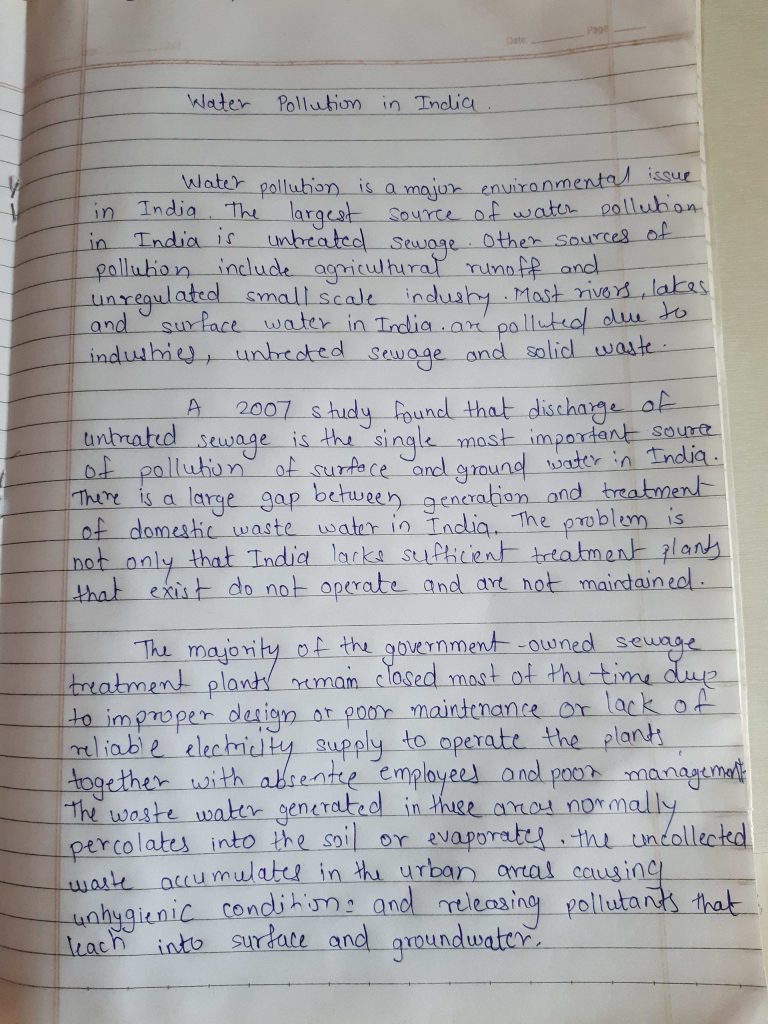 Date
Page
Water Pollution in India.
Water pollution is a major environmental issue
in India. The largest source of water pollution
in India is untreated sewage. Other sources of
pollution include agricultural runoff and
unregulated small scale industry. Most rivers, lakes
and surface water in India. are polluted due to
industries, untreated sewage and solid waste.
A 2007 study found that discharge of
untreated sewage is the single most important source
of pollution of surface and ground water in India.
There is a large gap between generation and treatment
of domestic waste water in India. The problem is
not only that India lacks sufficient treatment plants
that exist do not operate and are not maintained.
The majority of the government-owned sewage
treatment plants remain closed most of the time due
to improper design or poor maintenance or lack of
reliable electricity supply to operate the plants
together with absentee employees and poor management
The waste water generated in these areas normally
percolates into the soil or evaporates. the uncollected
waste accumulates in the urban areas causing
unhygienic conditions and releasing pollutants that
leach into surface and groundwater.